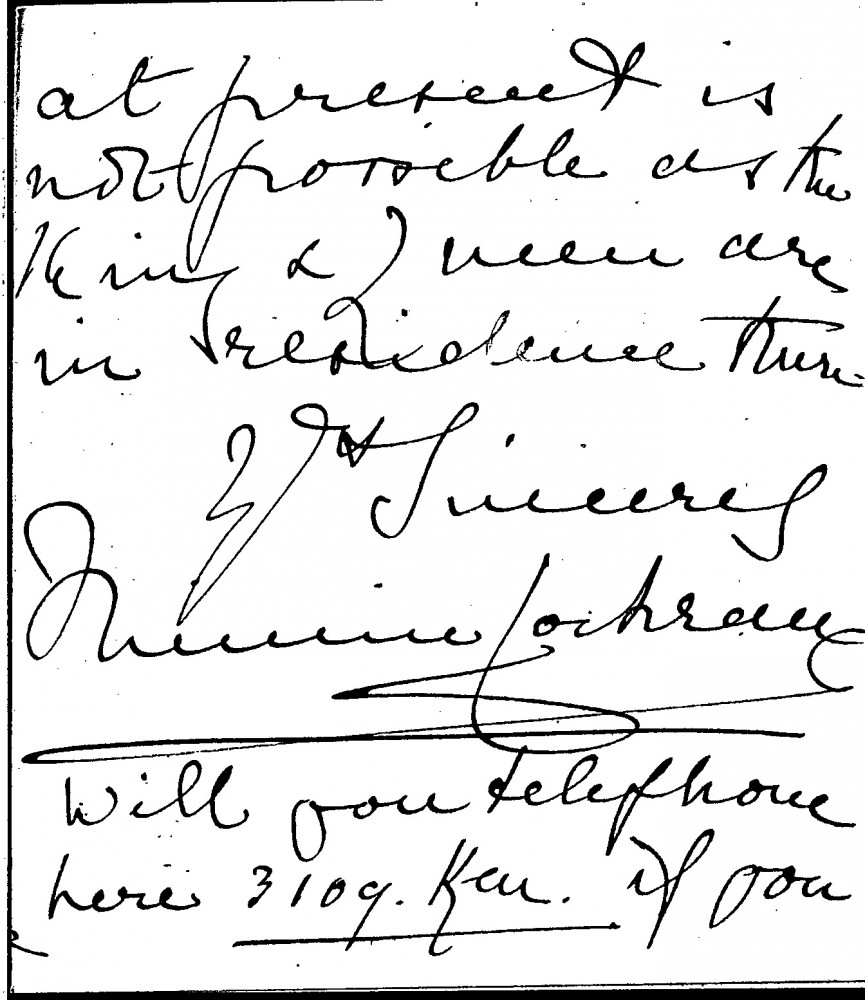 at present is
not possible as the
King & Queen are
in residence there
Yrs Sincerely
Minnie Cochrane
Will you telephone
here 3109. Ken. if you